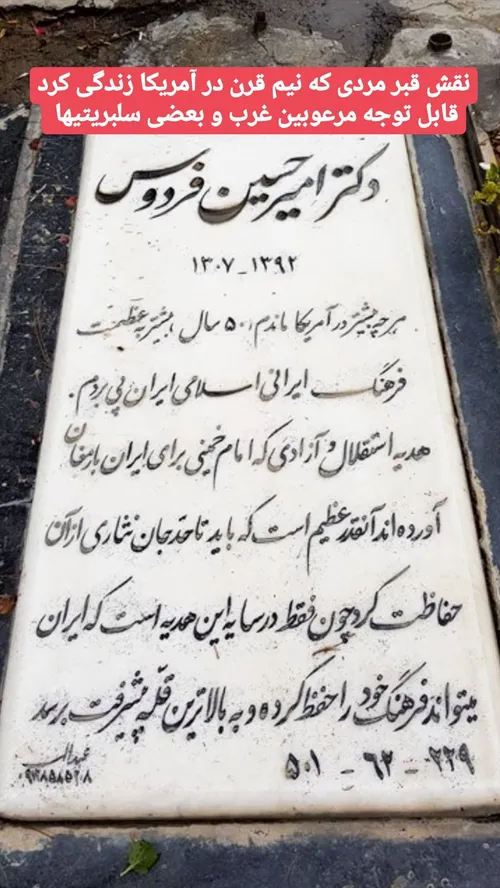 نقش قبر مردی که نیم قرن در آمریکا زندگی کرد
قابل توجه مرعوبین غرب و بعضی سلبریتیها
دکتر امیرحسین فردوس
۱۳۹۲ - ۱۳۰۷
هر چه بیشتر در آمریکا ماندم، ۵۰ سال بیشتر به عظمت
فرهنگ ایرانی اسلامی ایران پی بردم.
هدیه استقلال و آزادی که امام خمینی برای ایران بارمغان
آورده اند آنقدر عظیم است که باید تا حد جان نثاری از آن
حفاظت کرد چون فقط در سایه این هدیه است که ایران
میتواند فرهنگ خود را حفظ کرده و به بالاترین قله پیشرفت برسد
۵۰۱ - ۶۲ - ۲۲۹